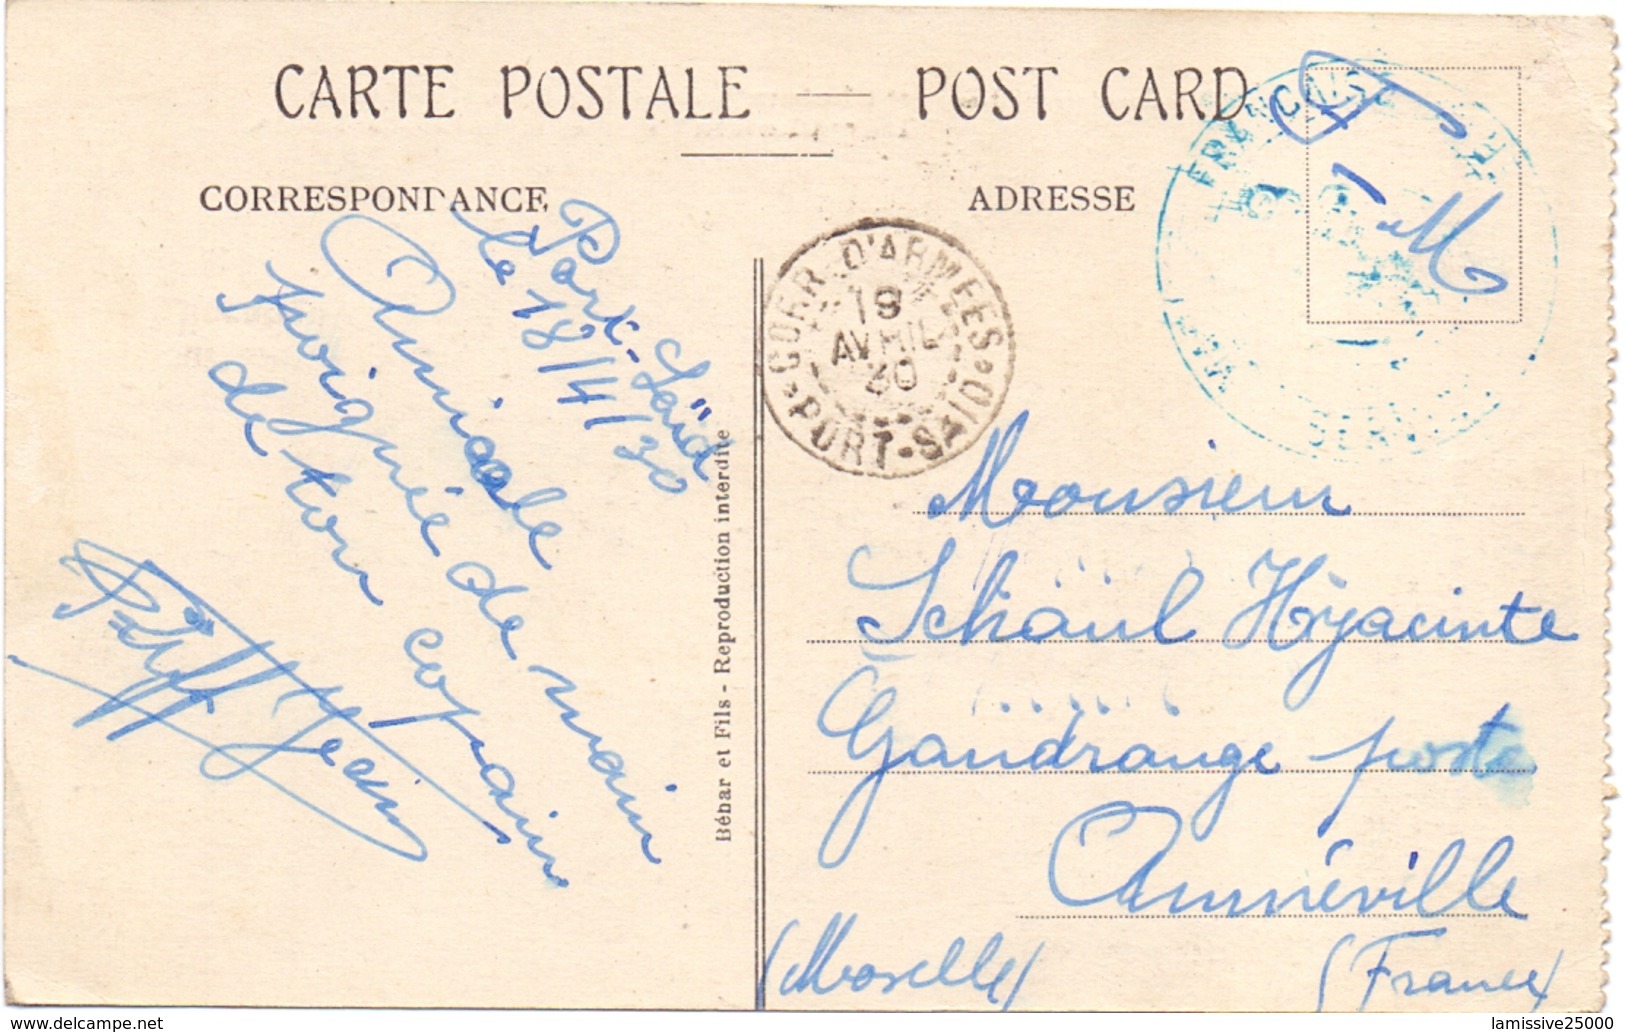 CARTE POSTALE — POST CARD
CORRESPONDANCE
ADRESSE
Port-Saïd
le 18/4/30
Amicale
poignée de main
de ton copain
Jean
Bébar et Fils - Reproduction interdite
CORR. D'ARMÉES
19
AVRIL
30
PORT-SAID
FRANÇAISE
F
M
Monsieur
Schaul Hyacinte
Gandrange poste
Amnéville
(Moselle) (France)
delcampe.net
lamissive25000